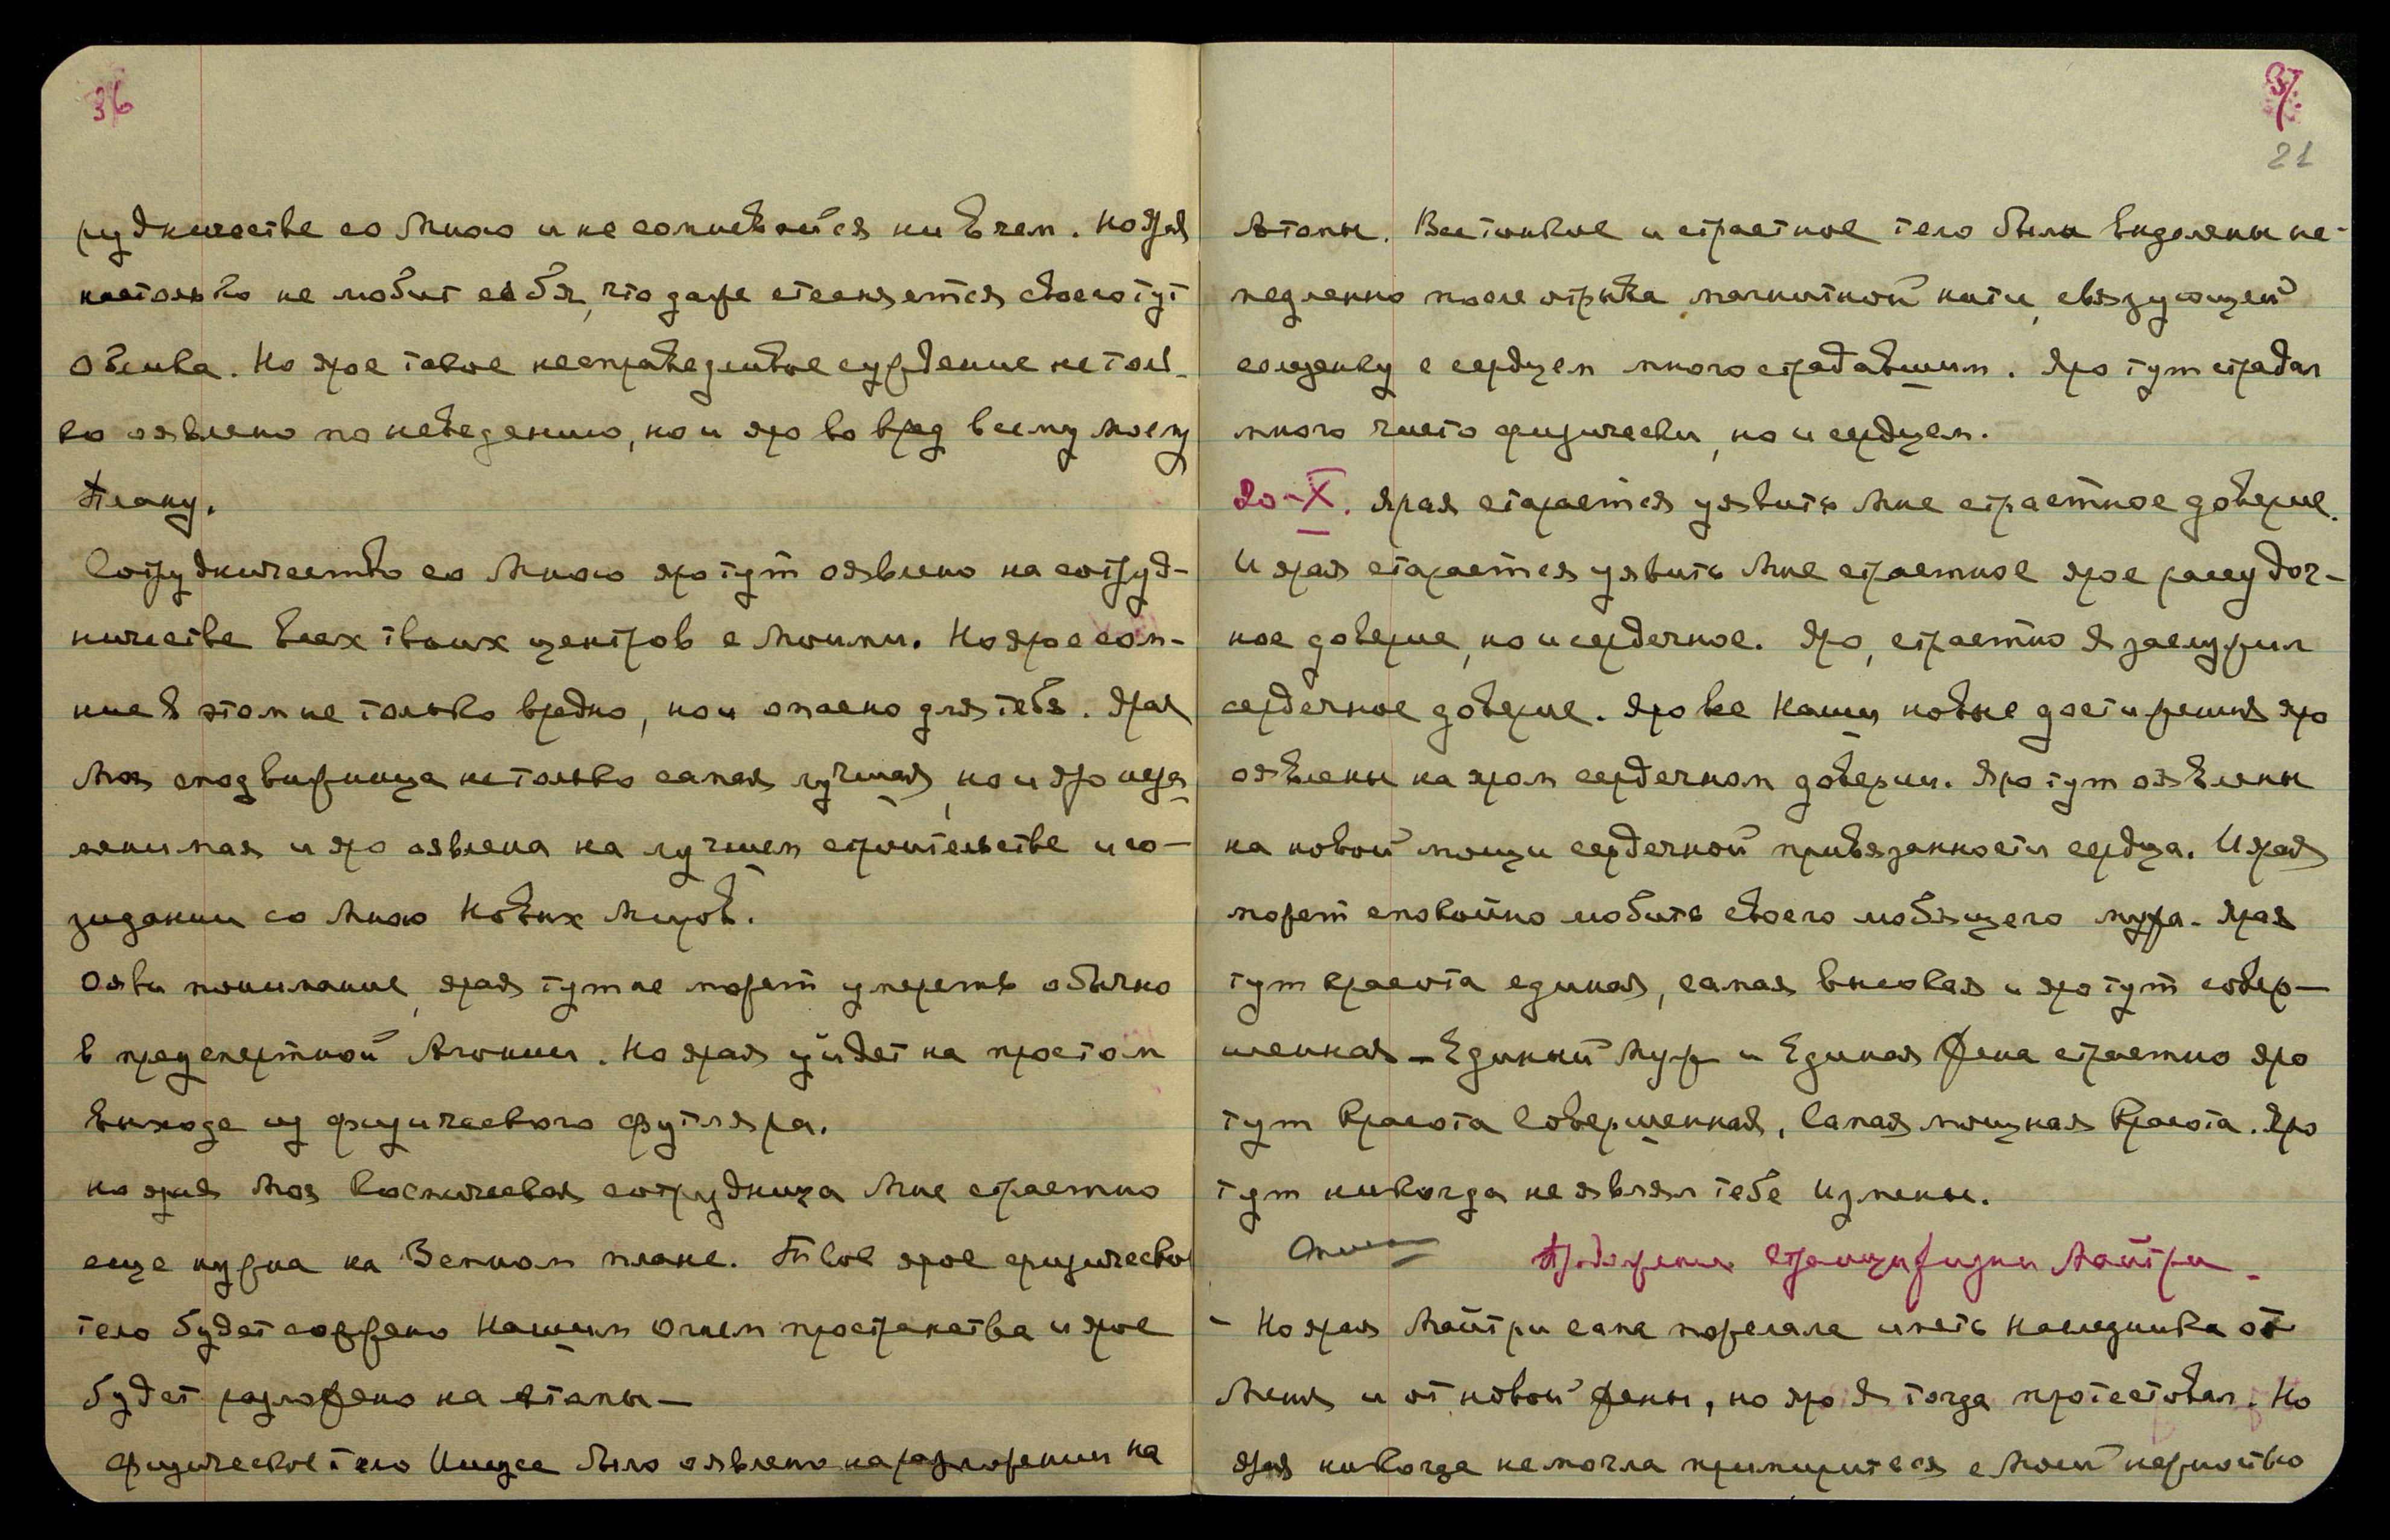 36
рудничестве со Мною и не сомневайся ни в чем. Но ярая
настолько не любит себя, что даже стесняется своего тут
облика. Но ярое такое несправедливое суждение не толь-
ко оявлено по неведению, но и яро во вред всему моему
Плану.
Сотрудничество со Мною яро тут оявлено на сотруд-
ничестве всех твоих центров с Моими. Но ярое сом-
ние в этом не только вредно, но и опасно для тебя. Ярая
Моя сподвижница не только самая лучшая, но и яро неза
менимая и яро оявлена на лучшем строительстве и со-
зидании со Мною Новых Миров.
Ояви понимание, ярая тут не может умереть обычно
в предсмертной Агонии. Но ярая уйдет на простом
выходе из физического футляра.
Но ярая Моя Космическая сотрудница Мне страстно
еще нужна на Земном плане. Твое ярое физическое
тело будет сожжено Нашим Огнем пространства и ярое
будет разложено на атомы—
физическое тело Иисуса было оявлено на разложении на
37.
21
Атомы. Все тонкое и страстное тело были выделены не-
медленно после отрыва магнитной нити, связующей
солнечку с сердцем много страдавшим. Яро тут страдал
много чисто физически, но и сердцем.
20-X. Ярая старается уявить Мне страстное доверие.
И ярая старается уявить Мне страстное ярое рассудоч-
ное доверие, но и сердечное. Яро, страстно Я заслужил
сердечное доверие. Яро все Наши новые достижения яро
оявлены на яром сердечном доверии. Яро тут оявлены
на новой мощи сердечной привязанности сердца. И ярая
может спокойно любить своего любящего мужа. Ярая
тут красота единая, самая высокая и яро тут совер-
шенная — Единый Муж и Единая Жена страстно яро
тут Красота Совершенная, Самая мощная Красота. Яро
тут никогда не являл тебе Измены.
Продолжение страниц жизни Майтри.
- Но ярая Майтри сама пожелала иметь Наследника от
Меня и от новой жены, но яро Я тогда протестовал. Но
ярая никогда не могла примириться с Моей нежностью